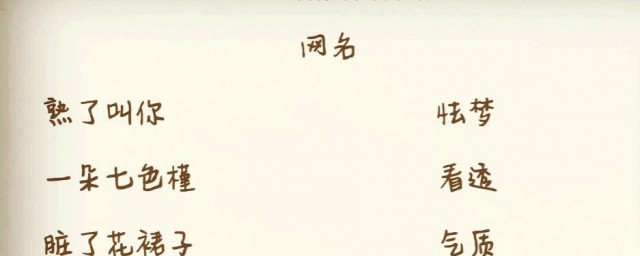 网名
熟了叫你 怯梦
一朵七色槿 看透
脏了花裙子 气质